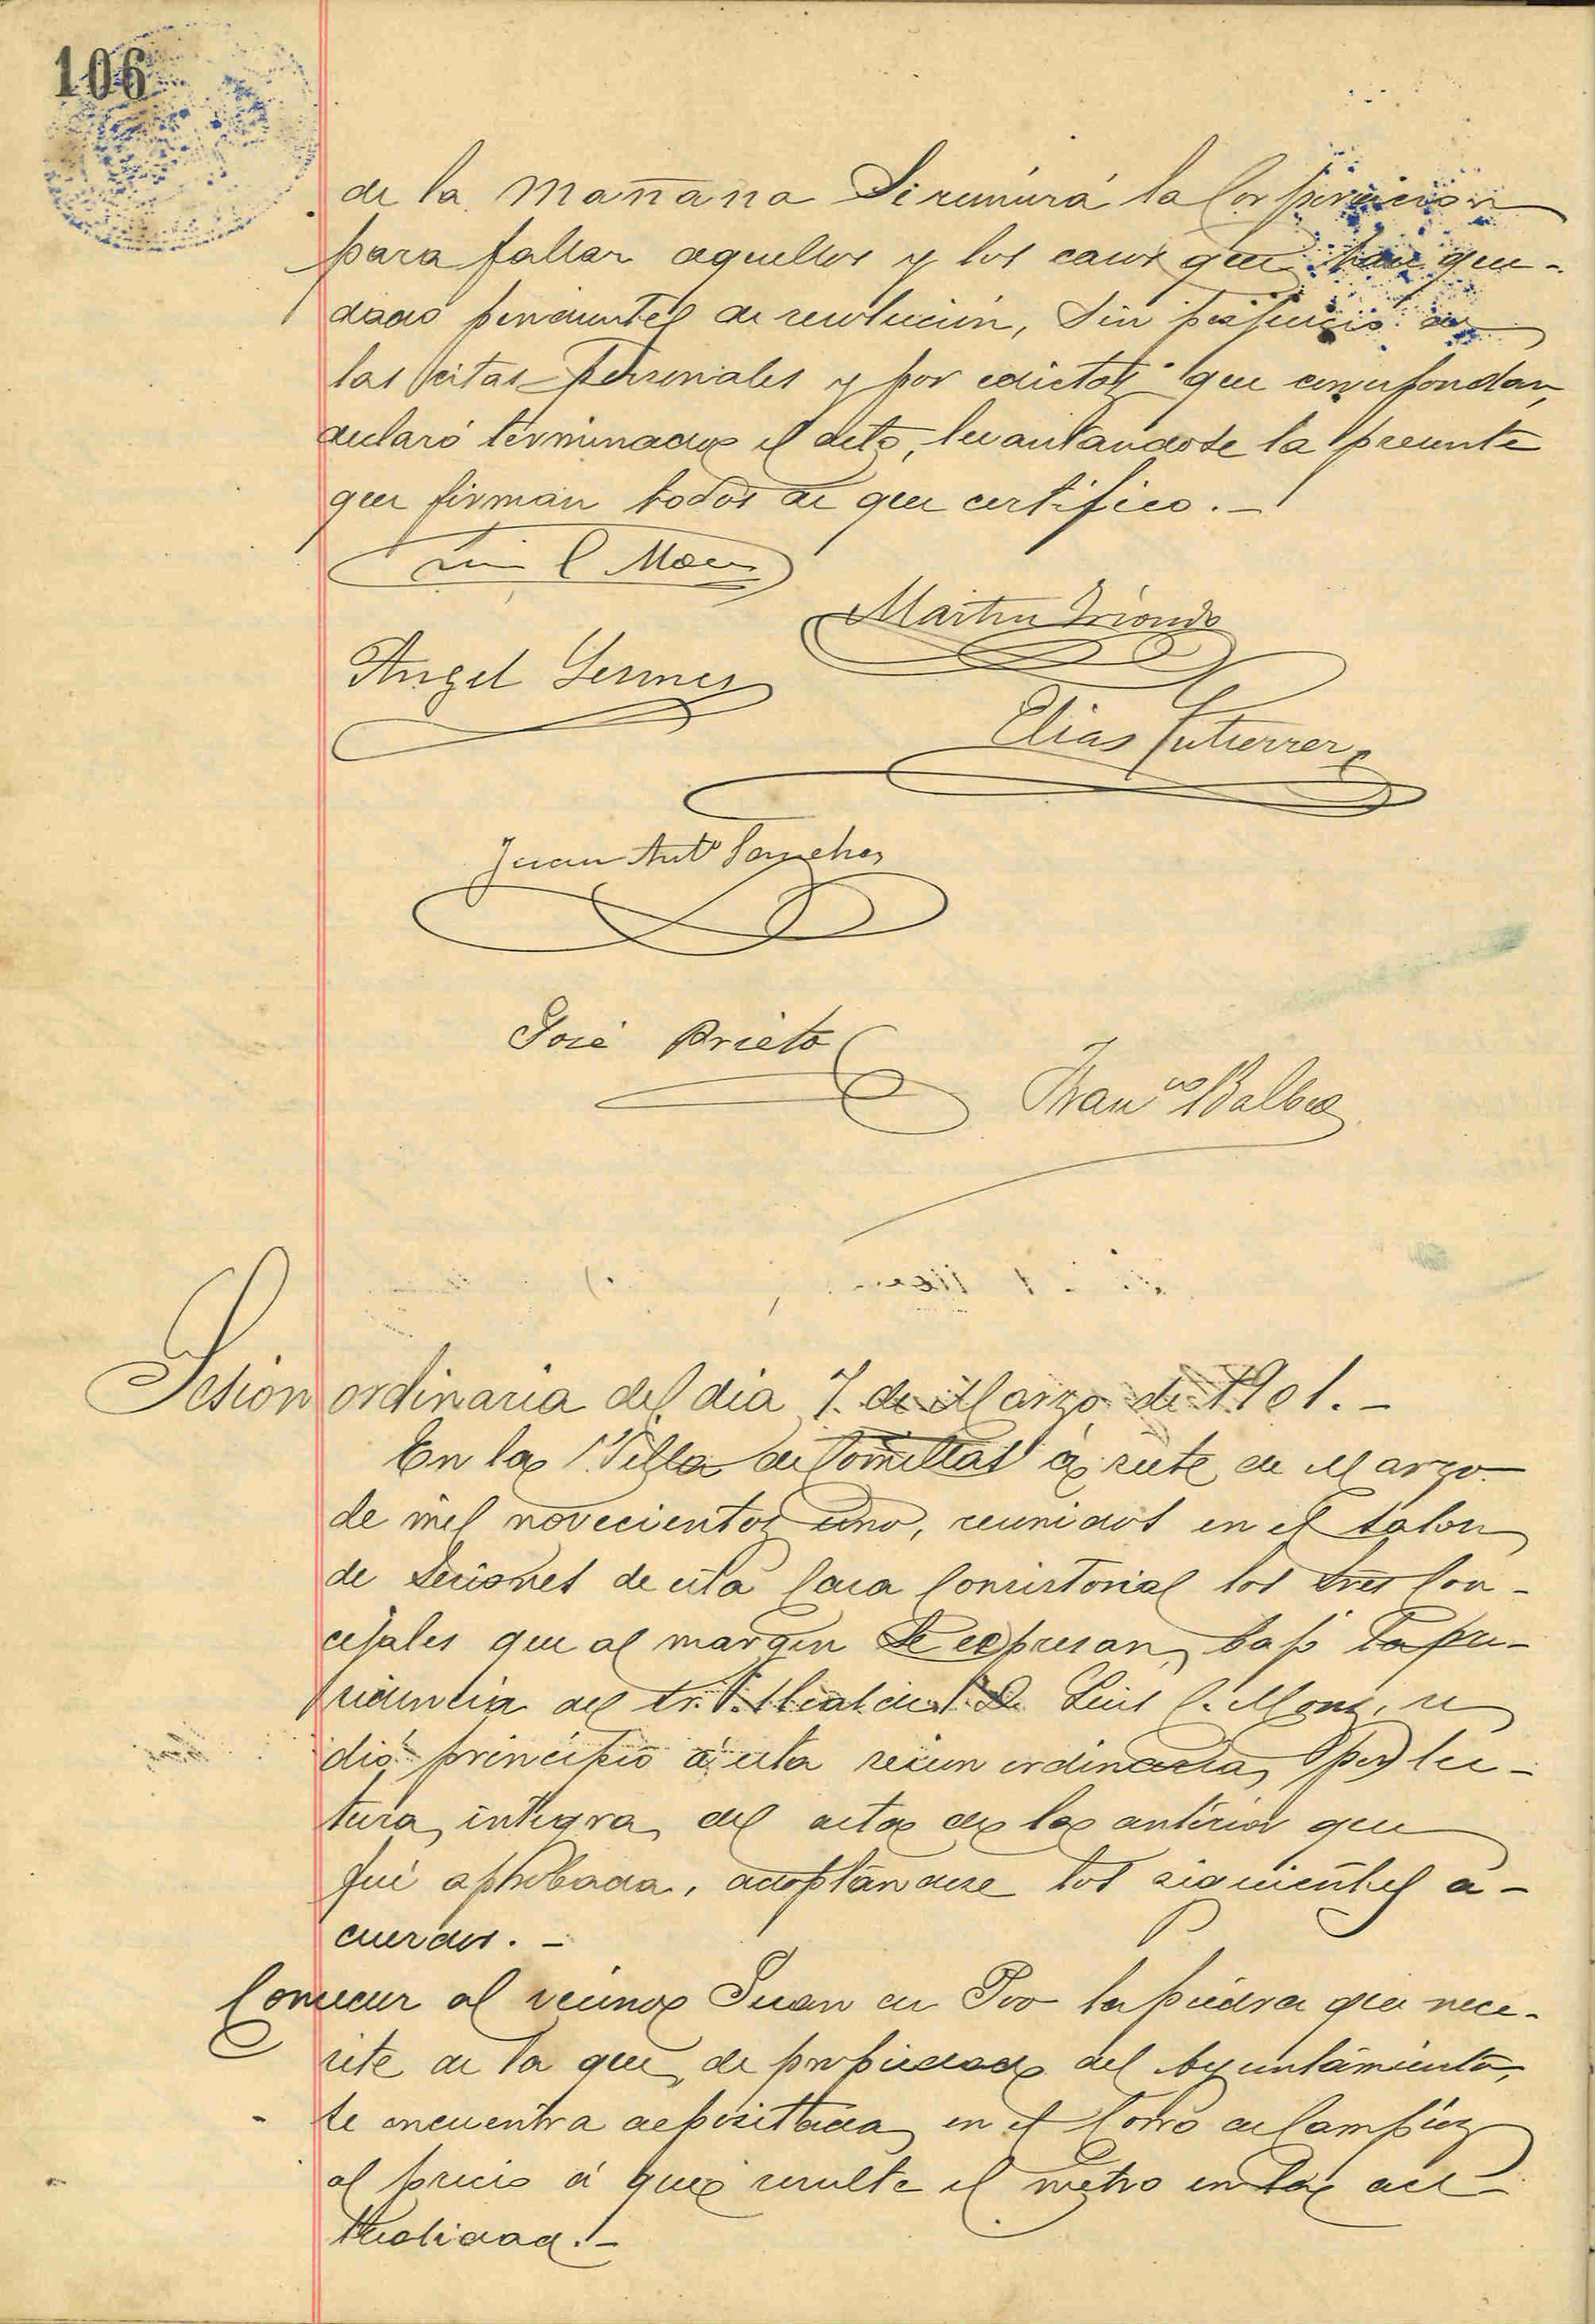 106
de la mañana se reunirá la Corporacion
para fallar aquellos y los casos que han que-
dado pendientes de resolución, sin perjuicio de
las citas personales y por edictos que correspondan,
declaró terminado el acto, levantandose la presente
que firman todos de que certifico.-
Martin Iriondo
Angel
Elias Gutierrez
Juan Antº Sanchez
José Prieto
Franco Balbas
Sesion ordinaria del dia 7 de Marzo de 1901.-
En la Villa de Comillas á siete de Marzo
de mil novecientos uno, reunidos en el salon
de sesiones de esta Casa Consistorial los Sres Con-
cejales que al margen se expresan, bajo la pre-
sidencia del Sr. Alcalde D. Luis C. Mons, se
dió principio á esta sesion ordinaria, por lec-
tura integra del acta de la anterior que
fué aprobada, adoptandose los siguientes a-
cuerdos.-
Conceder al vecino Juan de Poo la piedra que nece-
site de la que, de propiedad del Ayuntamiento,
se encuentra depositada en el Corro de Campíos
al precio á que resulte el metro en la ac-
tualidad.-